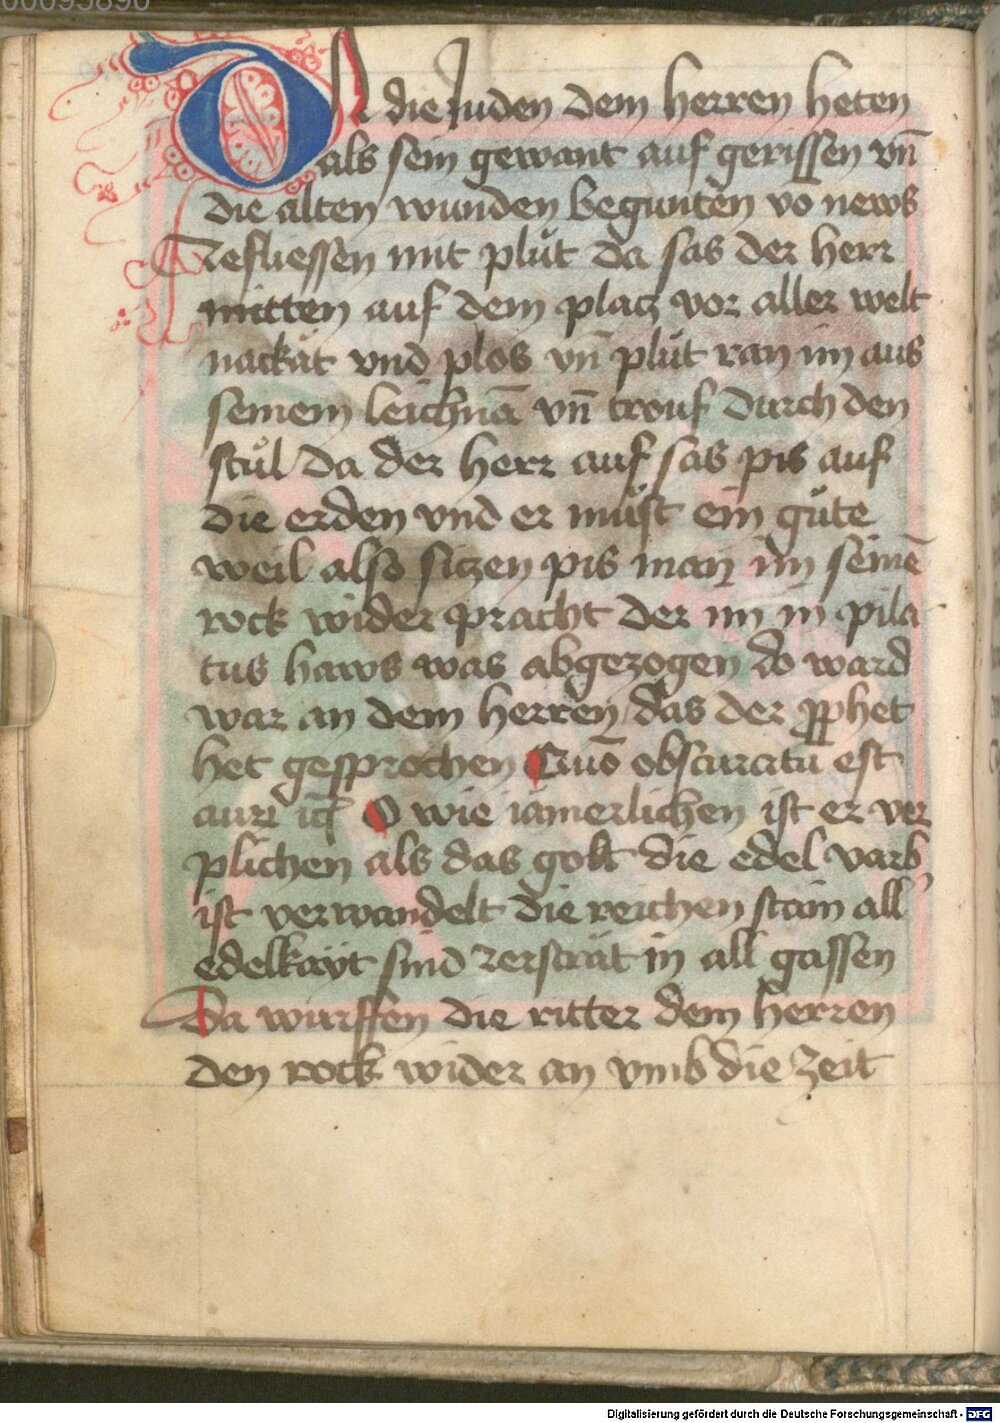 00095890
DA die Juden dem herren heten
als sein gewant auf gerissen vn̄
die alten wunden begunten vō news
Zefliessen mit plůt da sas der herr
mitten auf dem placz vor aller welt
nackat vnd plos vn̄ plůt ran im aus
seinem leichnā vn̄ trouf durch den
stůl da der herr auf sas pis auf
die erden vnd er můst ein gůte
weil also siczen pis man im seinē
rock wider pracht der im in pila
tus haws was abgezogen do ward
war an dem herren das der ꝓphet
het gesprochen Quō obscuratū est
auꝝ ⁊cꝫ O wie iamerlichen ist er ver
plichen als das golt die edel varb
ist verwandelt die reichen stain all
edelkayt sind zerstrat in all gassen
Da wurffen die ritter dem herren
den rock wider an vmb die zeit
Digitalisierung gefördert durch die Deutsche Forschungsgemeinschaft - DFG